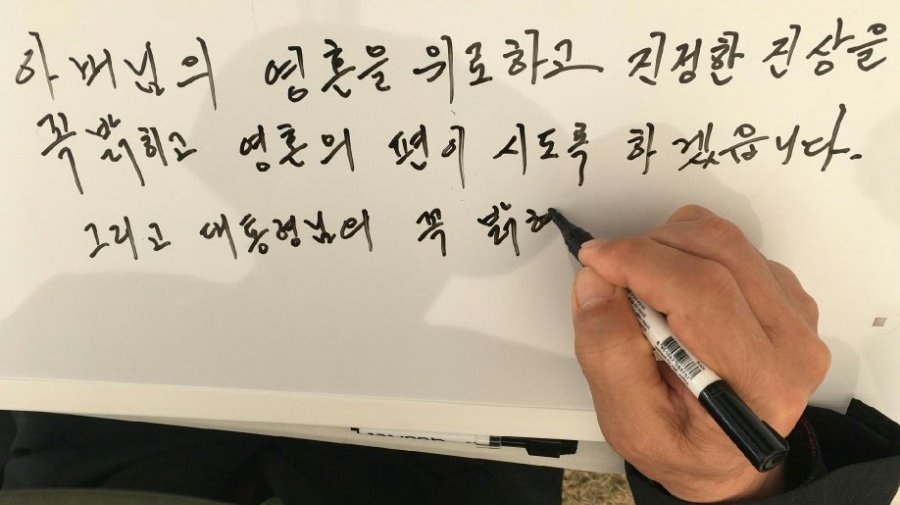 아버님의 영혼을 위로하고 진정한 진상을
꼭 밝히고 영혼의 편이 시도록 하겠읍니다.
그리고 대통령님의 꼭 밝혀